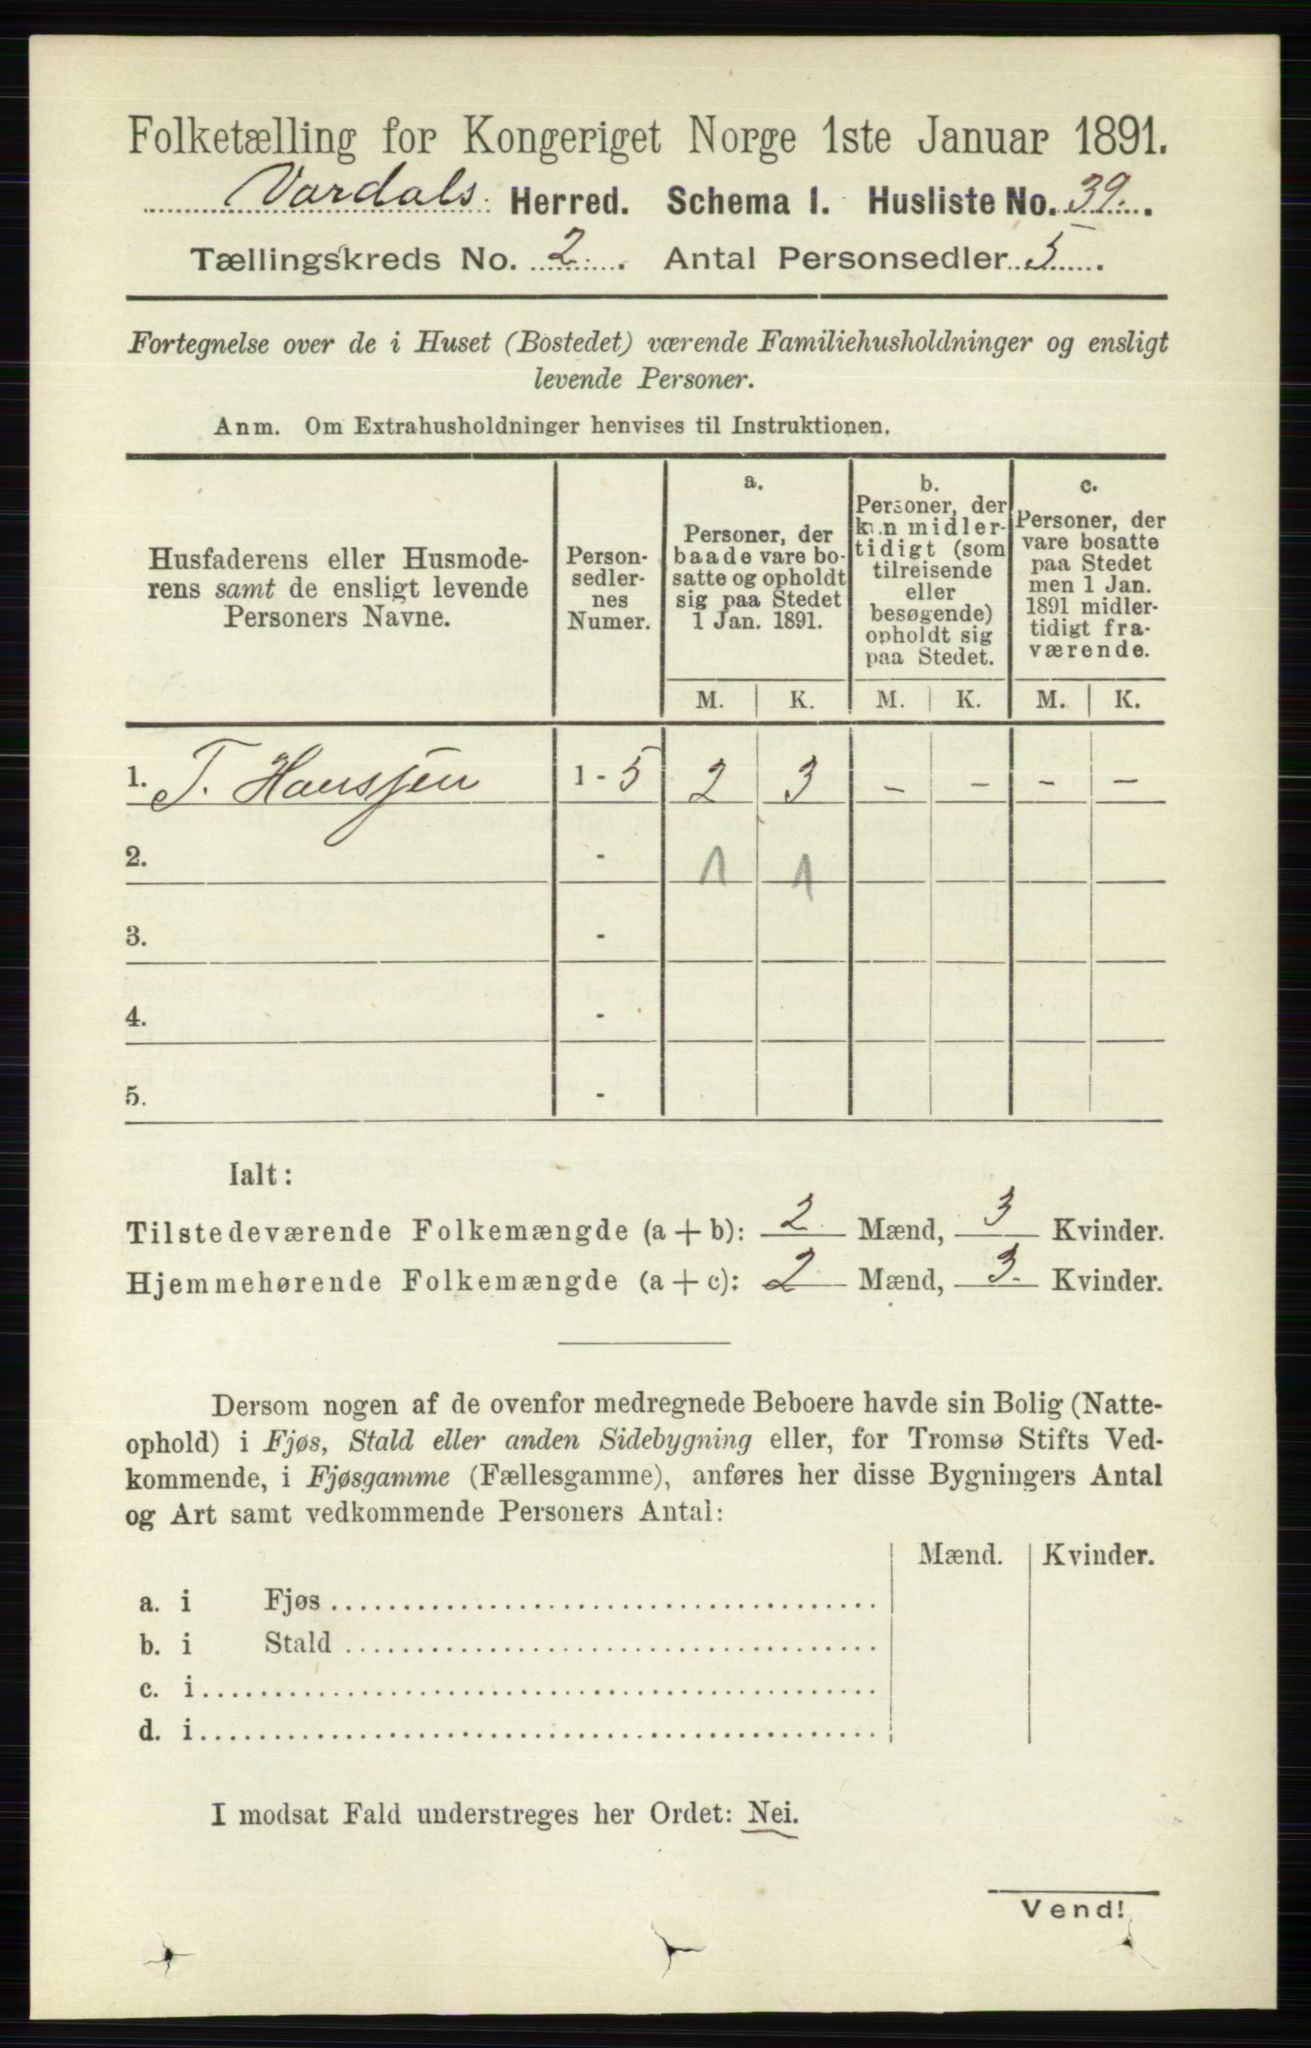 Folketælling for Kongeriget Norge 1ste Januar 1891.
Vardals Herred. Schema I. Husliste No. 39.
Tællingskreds No. 2. Antal Personsedler 5.
Fortegnelse over de i Huset (Bostedet) værende Familiehusholdninger og ensligt
levende Personer.
Anm. Om Extrahusholdninger henvises til Instruktionen.
Husfaderens eller Husmode-
rens samt de ensligt levende
Personers Navne.
Person-
sedler-
nes
Numer.
a.
Personer, der
baade vare bo-
satte og opholdt
sig paa Stedet
1 Jan. 1891.
b.
Personer, der
kun midler-
tidigt (som
tilreisende
eller
besøgende)
opholdt sig
paa Stedet.
c.
Personer, der
vare bosatte
paa Stedet
men 1 Jan.
1891 midler-
tidigt fra-
værende.
M. K. M. K. M. K.
1. T. Hanssen 1 - 5 2 3 - - - -
2. - 1 1
3. -
4. -
5. -
Ialt:
Tilstedeværende Folkemængde (a + b): 2 Mænd, 3 Kvinder.
Hjemmehørende Folkemængde (a + c): 2 Mænd, 3. Kvinder.
Dersom nogen af de ovenfor medregnede Beboere havde sin Bolig (Natte-
ophold) i Fjøs, Stald eller anden Sidebygning eller, for Tromsø Stifts Ved-
kommende, i Fjøsgamme (Fællesgamme), anføres her disse Bygningers Antal
og Art samt vedkommende Personers Antal:
Mænd. Kvinder.
a. i Fjøs
b. i Stald
c. i
d. i
I modsat Fald understreges her Ordet: Nei.
Vend!